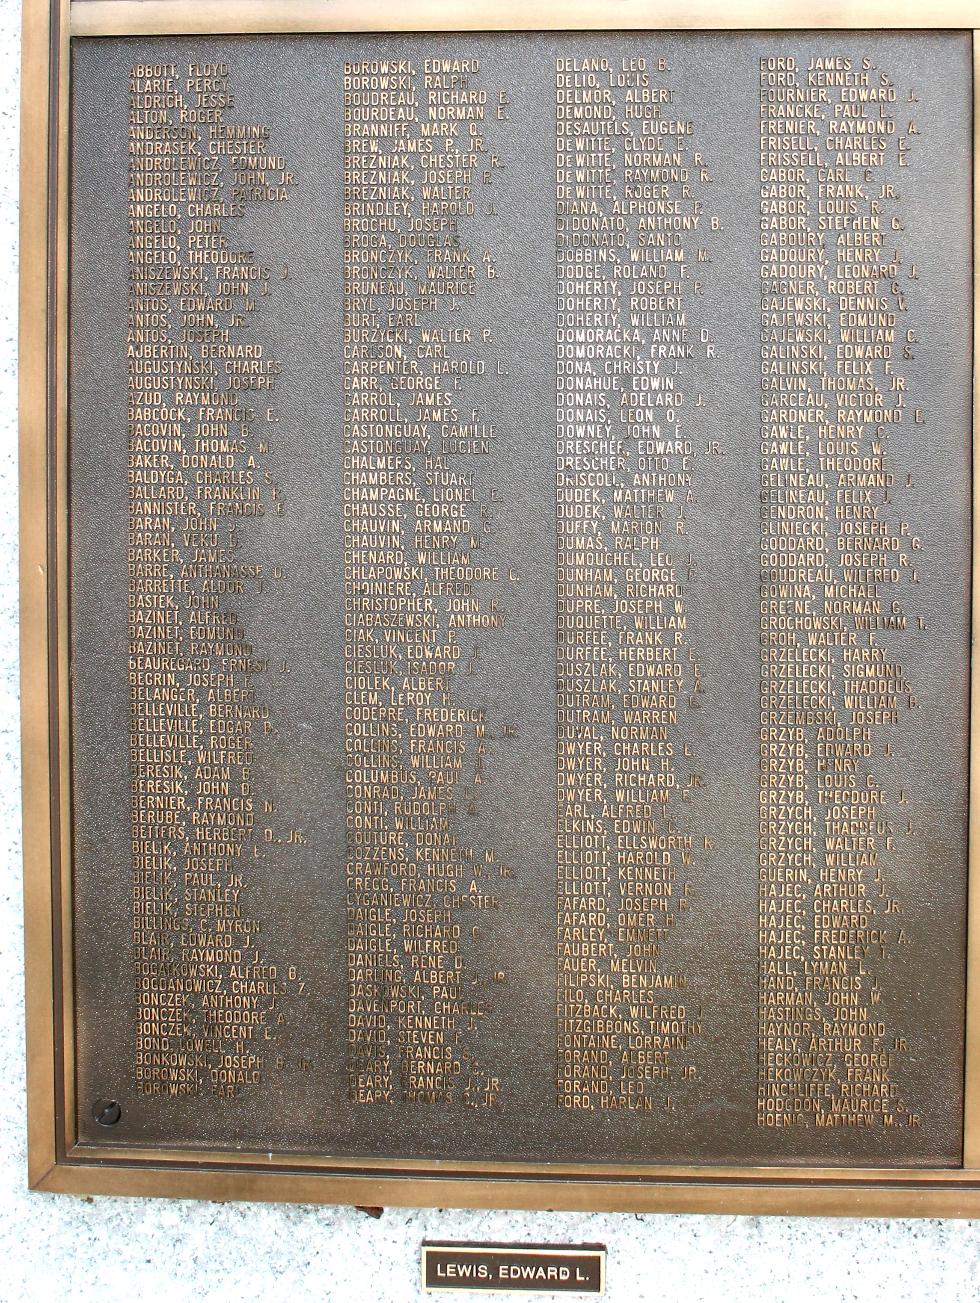 ABBOTT, FLOYD
ALARIE, PERCY
ALDRICH, JESSE
ALTON, ROGER
ANDERSON, HEMMING
ANDRASEK, CHESTER
ANDROLEWICZ, EDMUND
ANDROLEWICZ, JOHN, JR.
ANDROLEWICZ, PATRICIA
ANGELO, CHARLES
ANGELO, JOHN
ANGELO, PETER
ANGELO, THEODORE
ANISZEWSKI, FRANCIS J.
ANISZEWSKI, JOHN J.
ANTOS, EDWARD M.
ANTOS, JOHN, JR.
ANTOS, JOSEPH
AUBERTIN, BERNARD
AUGUSTYNSKI, CHARLES
AUGUSTYNSKI, JOSEPH
AZUD, RAYMOND
BABCOCK, FRANCIS E.
BACOVIN, JOHN B.
BACOVIN, THOMAS M.
BAKER, DONALD A.
BALDYGA, CHARLES S.
BALLARD, FRANKLIN
BANNISTER, FRANCIS E.
BARAN, JOHN
BARAN, VEKU
BARKER, JAMES
BARRE, ANTHANASSE
BARRETTE, ALDOR J.
BASTEK, JOHN
BAZINET, ALFRED
BAZINET, EDMUND
BAZINET, RAYMOND
BEAUREGARD, ERNEST J.
BEGRIN, JOSEPH
BELANGER, ALBERT
BELLEVILLE, BERNARD
BELLEVILLE, EDGAR
BELLEVILLE, ROGER
BELLISLE, WILFRED
BERESIK, ADAM B.
BERESIK, JOHN D.
BERNIER, FRANCIS N.
BERUBE, RAYMOND
BETTERS, HERBERT O., JR.
BIELIK, ANTHONY
BIELIK, JOSEPH
BIELIK, PAUL, JR.
BIELIK, STANLEY
BIELIK, STEPHEN
BILLINGS, C. MYRON
BLAIR, EDWARD J.
BLAIR, RAYMOND J.
BOGATKOWSKI, ALFRED B.
BOGDANOWICZ, CHARLES Z.
BONCZEK, ANTHONY J.
BONCZEK, THEODORE A.
BONCZEK, VINCENT E.
BOND, LOWELL H.
BONKOWSKI, JOSEPH JR.
BOROWSKI, DONALD
BOROWSKI, EARL
BOROWSKI, EDWARD
BOROWSKI, RALPH
BOUDREAU, RICHARD E.
BOURDEAU, NORMAN E.
BRANNIFF, MARK Q.
BREW, JAMES P., JR.
BREZNIAK, CHESTER R.
BREZNIAK, JOSEPH P.
BREZNIAK, WALTER
BRINDLEY, HAROLD J.
BROCHU, JOSEPH
BROGA, DOUGLAS
BRONCZYK, FRANK A.
BRONCZYK, WALTER B.
BRUNEAU, MAURICE
BRYL, JOSEPH J.
BURT, EARL
BURZYCKI, WALTER P.
CARLSON, CARL
CARPENTER, HAROLD L.
CARR, GEORGE F.
CARROL, JAMES
CARROLL, JAMES F.
CASTONGUAY, CAMILLE
CASTONGUAY, LUCIEN
CHALMERS, HAL
CHAMBERS, STUART
CHAMPAGNE, LIONEL E.
CHAUSSE, GEORGE R.
CHAUVIN, ARMAND G.
CHAUVIN, HENRY M.
CHENARD, WILLIAM
CHLAPOWSKI, THEODORE C.
CHOINIERE, ALFRED
CHRISTOPHER, JOHN R.
CIABASZEWSKI, ANTHONY
CIAK, VINCENT P.
CIESLUK, EDWARD J.
CIESLUK, ISADOR J.
CIOLEK, ALBERT
CLEM, LEROY H.
CODERRE, FREDERICK
COLLINS, EDWARD M., JR.
COLLINS, FRANCIS A.
COLLINS, WILLIAM J.
COLUMBUS, PAUL A.
CONRAD, JAMES
CONTI, RUDOLPH
CONTI, WILLIAM
COUTURE, DONAT
COZZENS, KENNETH M.
CRAWFORD, HUGH W., JR.
CREGG, FRANCIS A.
CYGANIEWICZ, CHESTER
DAIGLE, JOSEPH
DAIGLE, RICHARD C.
DAIGLE, WILFRED
DANIELS, RENE D.
DARLING, ALBERT J., JR.
DASKOWSKI, PAUL
DAVENPORT, CHARLES
DAVID, KENNETH J.
DAVID, STEVEN F.
DAVIS, FRANCIS
DEARY, BERNARD C.
DEARY, FRANCIS J., JR.
DEARY, THOMAS C., JR.
DELANO, LEO B.
DELIO, LOUIS
DELMOR, ALBERT
DEMOND, HUGH
DESAUTELS, EUGENE
DEWITTE, CLYDE E.
DEWITTE, NORMAN R.
DEWITTE, RAYMOND R.
DEWITTE, ROGER R.
DIANA, ALPHONSE P.
DIDONATO, ANTHONY B.
DIDONATO, SANTO
DOBBINS, WILLIAM M.
DODGE, ROLAND F.
DOHERTY, JOSEPH P.
DOHERTY, ROBERT
DOHERTY, WILLIAM
DOMORACKA, ANNE D.
DOMORACKI, FRANK R.
DONA, CHRISTY J.
DONAHUE, EDWIN
DONAIS, ADELARD J.
DONAIS, LEON O.
DOWNEY, JOHN E.
DRESCHER, EDWARD, JR.
DRESCHER, OTTO E.
DRISCOLL, ANTHONY
DUDEK, MATTHEW A.
DUDEK, WALTER J.
DUFFY, MARION R.
DUMAS, RALPH
DUMOUCHEL, LEO J.
DUNHAM, GEORGE F.
DUNHAM, RICHARD
DUPRE, JOSEPH W.
DUQUETTE, WILLIAM
DURFEE, FRANK R.
DURFEE, HERBERT E.
DUSZLAK, EDWARD E.
DUSZLAK, STANLEY A.
DUTRAM, EDWARD
DUTRAM, WARREN
DUVAL, NORMAN
DWYER, CHARLES L.
DWYER, JOHN H.
DWYER, RICHARD, JR.
DWYER, WILLIAM E.
EARL, ALFRED L.
ELKINS, EDWIN C.
ELLIOTT, ELLSWORTH K.
ELLIOTT, HAROLD W.
ELLIOTT, KENNETH
ELLIOTT, VERNON F.
FAFARD, JOSEPH R.
FAFARD, OMER H.
FARLEY, EMMETT
FAUBERT, JOHN
FAUER, MELVIN
FILIPSKI, BENJAMIN
FILO, CHARLES
FITZBACK, WILFRED J.
FITZGIBBONS, TIMOTHY
FONTAINE, LORRAINE
FORAND, ALBERT
FORAND, JOSEPH, JR.
FORAND, LEO
FORD, HARLAN J.
FORD, JAMES S.
FORD, KENNETH S.
FOURNIER, EDWARD J.
FRANCKE, PAUL L.
FRENIER, RAYMOND A.
FRISELL, CHARLES E.
FRISSELL, ALBERT E.
GABOR, CARL C.
GABOR, FRANK, JR.
GABOR, LOUIS R.
GABOR, STEPHEN G.
GABOURY, ALBERT
GADOURY, HENRY J.
GADOURY, LEONARD J.
GAGNER, ROBERT G.
GAJEWSKI, DENNIS V.
GAJEWSKI, EDMUND
GAJEWSKI, WILLIAM C.
GALINSKI, EDWARD S.
GALINSKI, FELIX F.
GALVIN, THOMAS, JR.
GARCEAU, VICTOR J.
GARDNER, RAYMOND E.
GAWLE, HENRY C.
GAWLE, LOUIS W.
GAWLE, THEODORE
GELINEAU, ARMAND J.
GELINEAU, FELIX J.
GENDRON, HENRY
GLINIECKI, JOSEPH P.
GODDARD, BERNARD G.
GODDARD, JOSEPH R.
GOUDREAU, WILFRED J.
GOWINA, MICHAEL
GREENE, NORMAN G.
GROCHOWSKI, WILLIAM T.
GROH, WALTER F.
GRZELECKI, HARRY
GRZELECKI, SIGMUND
GRZELECKI, THADDEUS
GRZELECKI, WILLIAM B.
GRZEMBSKI, JOSEPH
GRZYB, ADOLPH
GRZYB, EDWARD J.
GRZYB, HENRY
GRZYB, LOUIS C.
GRZYB, THEODORE J.
GRZYCH, JOSEPH
GRZYCH, THADDEUS J.
GRZYCH, WALTER F.
GRZYCH, WILLIAM
GUERIN, HENRY J.
HAJEC, ARTHUR J.
HAJEC, CHARLES, JR.
HAJEC, EDWARD
HAJEC, FREDERICK A.
HAJEC, STANLEY T.
HALL, LYMAN L.
HAND, FRANCIS J.
HARMAN, JOHN W.
HASTINGS, JOHN
HAYNOR, RAYMOND
HEALY, ARTHUR F., JR.
HECKOWICZ, GEORGE
HEKOWCZYK, FRANK
HINCHLIFFE, RICHARD
HODGDON, MAURICE S.
HOENIG, MATTHEW M., JR.
LEWIS, EDWARD L.